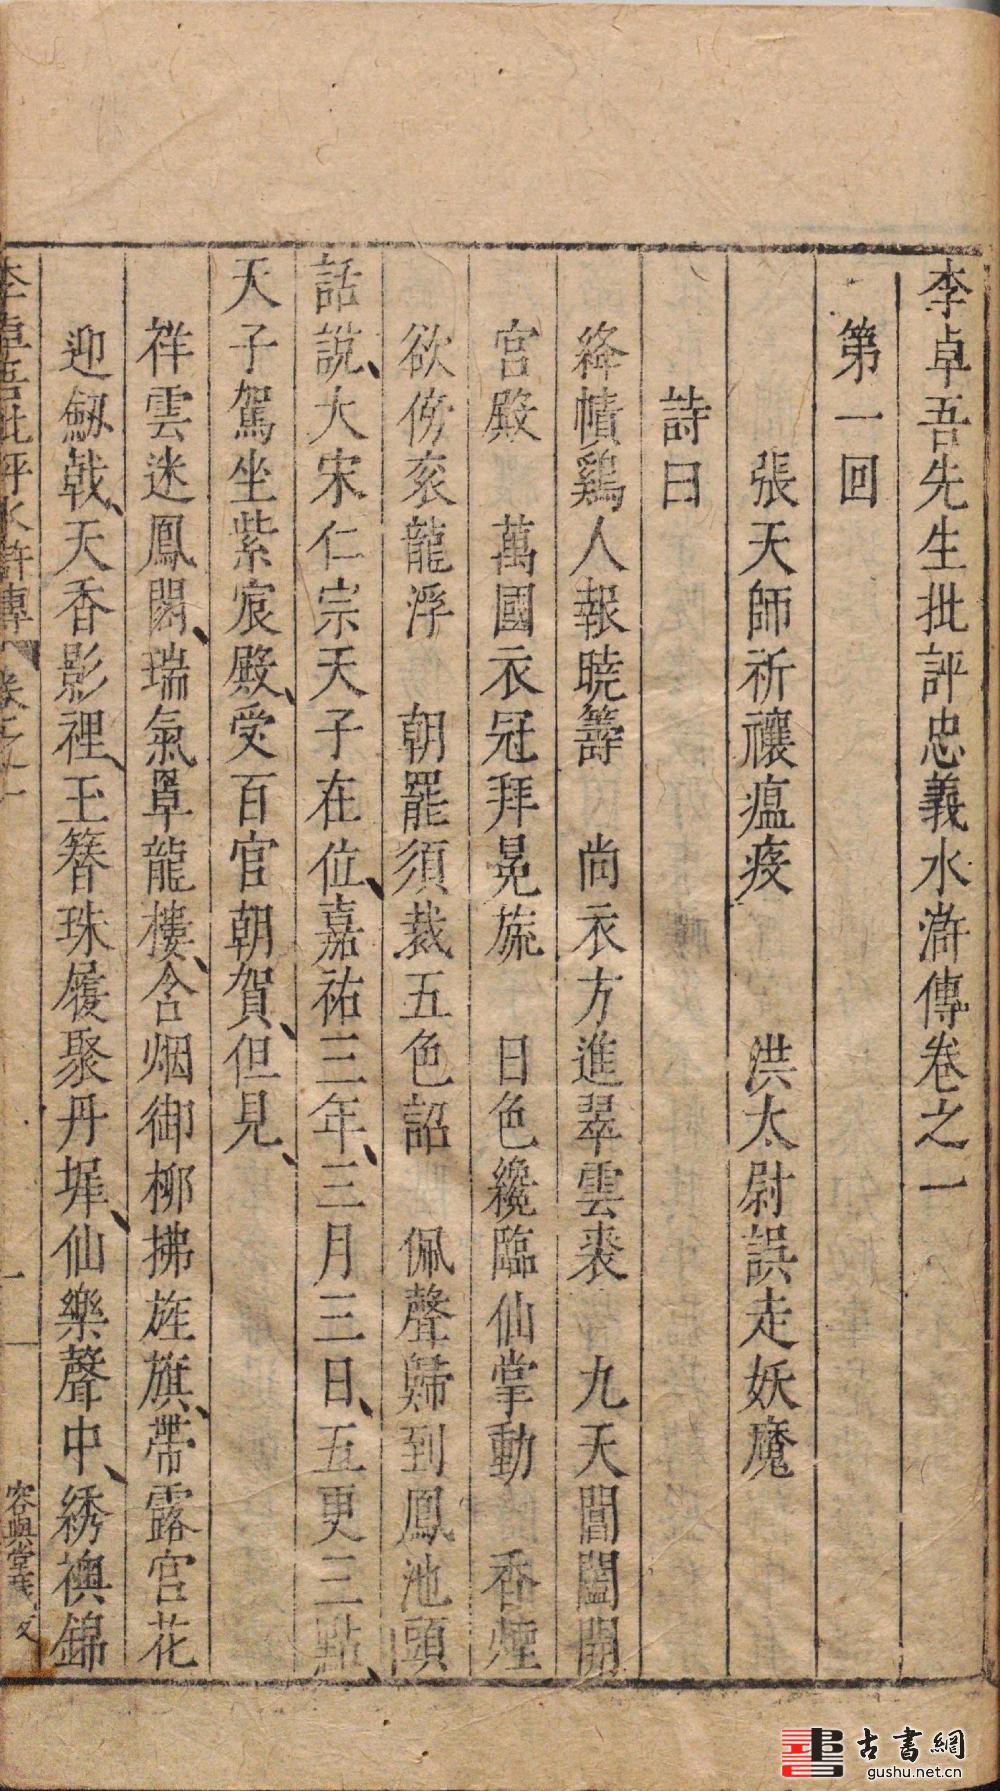 李卓吾先生批評忠義水滸傳卷之一
第一回
張天師祈禳瘟疫　洪太尉誤走妖魔
詩曰
絳幘鷄人報曉籌　尚衣方進翠雲裘　九天閶闔開
宮殿　萬國衣冠拜冕旒　日色纔臨仙掌動　香煙
欲傍衮龍浮　朝罷須裁五色詔　佩聲歸到鳳池頭
話說、大宋仁宗天子在位、嘉祐三年、三月三日、五更三點、
天子駕坐紫宸殿、受百官朝賀、但見、
祥雲迷鳳閣、瑞氣罩龍樓、含烟御柳拂旌旗、帶露宮花
迎劒戟、天香影裡、玉簪珠履聚丹墀、仙樂聲中、綉襖錦
李卓吾批評水滸傳　卷之一　一　容與堂
古書網
gushu.net.cn